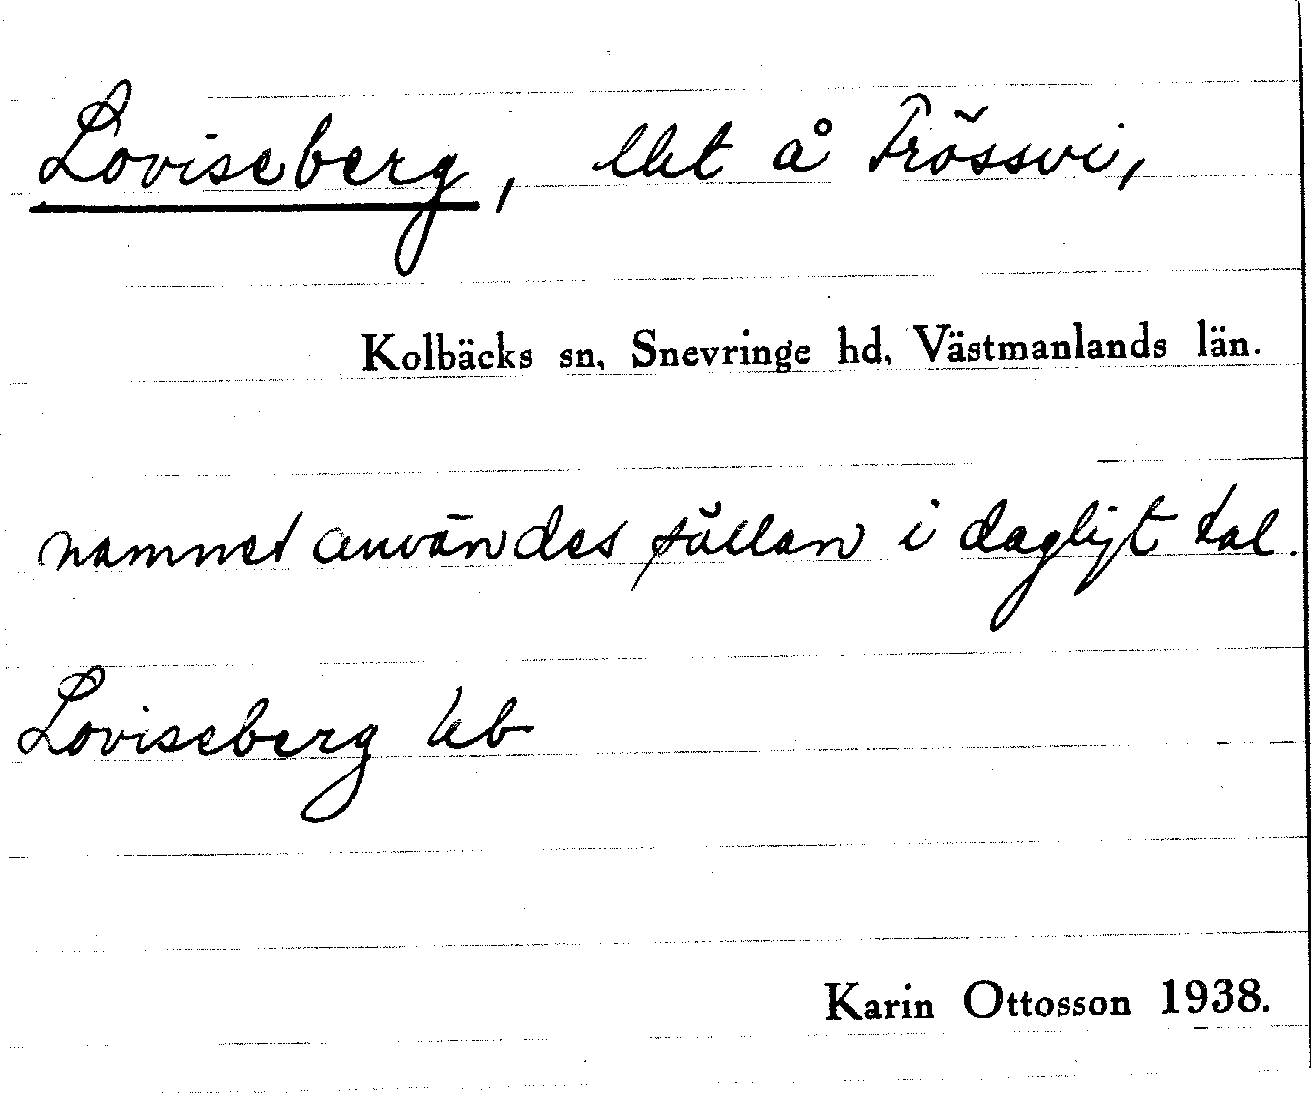 Loviseberg, lht å Frössvi,
Kolbäcks sn, Snevringe hd, Västmanlands län.
namnet användes sällan i dagligt tal.
Loviseberg kb
Karin Ottosson 1938.